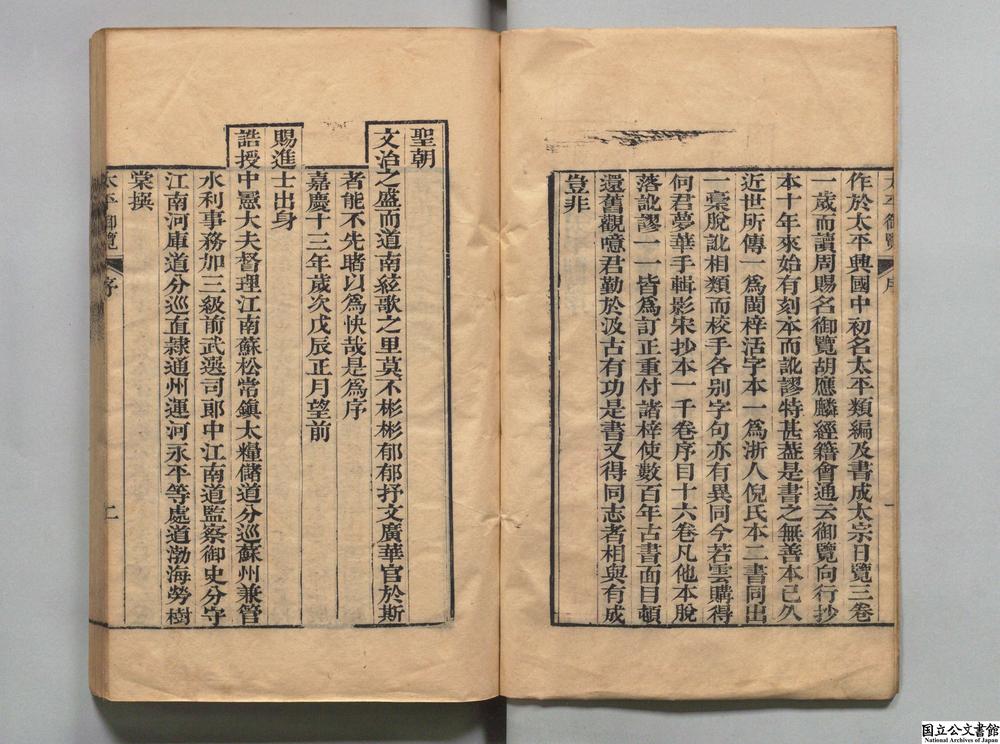 太平御覽 序 一
作於太平興國中初名太平類編及書成太宗日覽三卷
一歲而讀周賜名御覽胡應麟經籍會通云御覽向行抄
本十年來始有刻本而訛謬特甚葢是書之無善本已久
近世所傳一爲閩梓活字本一爲浙人倪氏本二書同出
一稾脫訛相類而校手各別字句亦有異同今若雲購得
何君夢華手輯影宋抄本一千卷序目十六卷凡他本脫
落訛謬一一皆爲訂正重付諸梓使數百年古書面目頓
還舊觀噫君勤於汲古有功是書又得同志者相與有成
豈非
聖朝
文治之盛而道南絃歌之里莫不彬彬郁郁抒文廣華官於斯
者能不先睹以爲快哉是爲序
嘉慶十三年歲次戊辰正月望前
賜進士出身
誥授中憲大夫督理江南蘇松常鎮太糧儲道分巡蘇州兼管
水利事務加三級前武選司郎中江南道監察御史分守
江南河庫道分巡直隸通州運河永平等處道渤海勞樹
棠撰
太平御覽 序 二
国立公文書館
National Archives of Japan